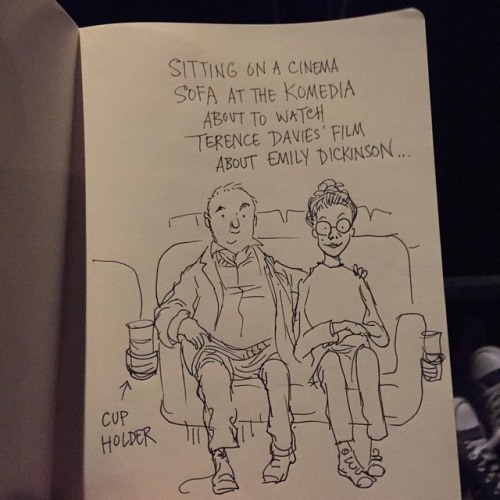 SITTING ON A CINEMA
SOFA AT THE KOMEDIA
ABOUT TO WATCH
TERENCE DAVIES' FILM
ABOUT EMILY DICKINSON...
CUP
HOLDER